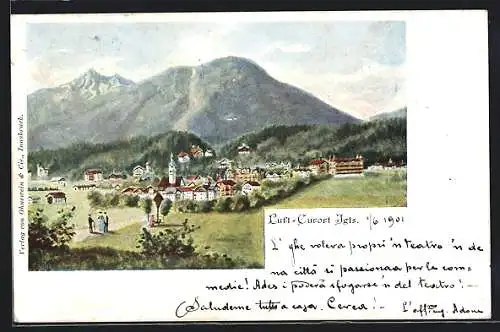 Verlag von Ohnesorein & Co., Innsbruck.
Luft-Curort Igls. 1/6 1901
L' ghe voleva propri 'n teatro 'n de
na città sì passionaa per la com-
medie! Ades i poderà sfogarse 'n del teatro! –
(Saludeme tutti a casa. Cerea! – L'affez. Adone